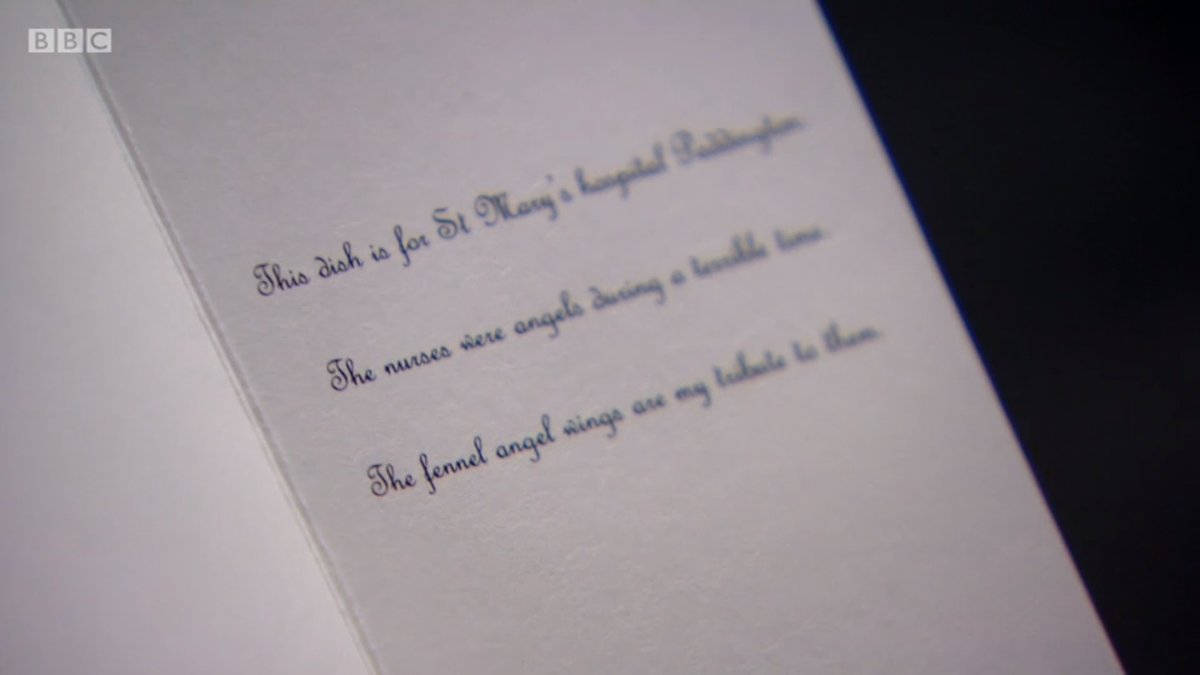 BBC
This dish is for St Mary's hospital Paddington.
The nurses were angels during a terrible time.
The fennel angel wings are my tribute to them.